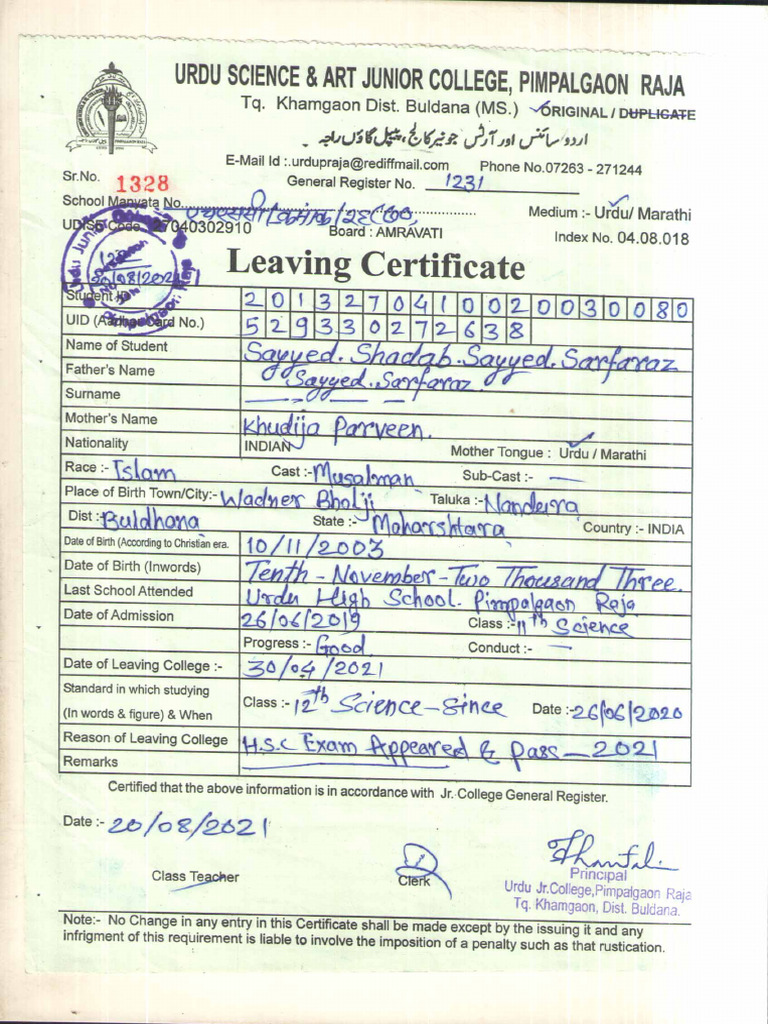 URDU SCIENCE & ART JUNIOR COLLEGE, PIMPALGAON RAJA
Tq. Khamgaon Dist. Buldana (MS.) ✓ORIGINAL / DUPLICATE
اردو سائنس اور آرٹس جونیر کالج، پیپل گاؤں راجہ ۔
E-Mail Id :.urdupraja@rediffmail.com Phone No.07263 - 271244
Sr.No. 1328 General Register No. 1231
School Manyata No.
Medium :- Urdu/ Marathi
UDISE Code 27040302910 Board : AMRAVATI Index No. 04.08.018
Leaving Certificate
Student ID 2013270410020030080
UID (Aadhar Card No.) 529330272638
Name of Student Sayyed. Shadab. Sayyed. Sarfaraz
Father's Name Sayyed. Sarfaraz
Surname — — —
Mother's Name Khudija Parveen.
Nationality INDIAN Mother Tongue : Urdu / Marathi
Race :- Islam Cast :- Musalman Sub-Cast :- —
Place of Birth Town/City:- Wadner Bholji Taluka :- Nandura
Dist : Buldhana State :- Maharshtara Country :- INDIA
Date of Birth (According to Christian era. 10/11/2003
Date of Birth (Inwords) Tenth - November - Two Thousand Three.
Last School Attended Urdu High School. Pimpalgaon Raja
Date of Admission 26/06/2019 Class :- 11th Science
Progress :- Good Conduct :- —
Date of Leaving College :- 30/04/2021
Standard in which studying
(In words & figure) & When Class :- 12th Science - Since Date :- 26/06/2020
Reason of Leaving College H.S.C Exam Appeared & pass - 2021
Remarks
Certified that the above information is in accordance with Jr. College General Register.
Date :- 20/08/2021
Class Teacher Clerk Principal
Urdu Jr.College,Pimpalgaon Raja
Tq. Khamgaon, Dist. Buldana.
Note:- No Change in any entry in this Certificate shall be made except by the issuing it and any
infrigment of this requirement is liable to involve the imposition of a penalty such as that rustication.